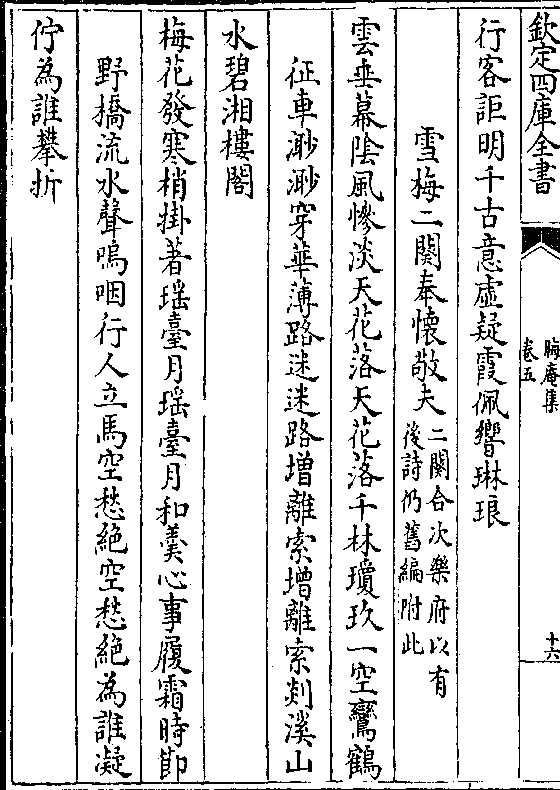 欽定四庫全書
晦庵集
卷五
十六
行客詎明千古意虛疑霞佩響琳琅
雪梅二闋奉懷敬夫
二闋合次樂府以有
後詩仍舊編附此
雲垂幕陰風慘淡天花落天花落千林瓊玖一空鸞鶴
征車渺渺穿華薄路迷迷路增離索增離索剡溪山
水碧湘樓閣
梅花發寒梢掛著瑶臺月瑶臺月和羹心事履霜時節
野橋流水聲嗚咽行人立馬空愁絕空愁絕為誰凝
佇為誰攀折